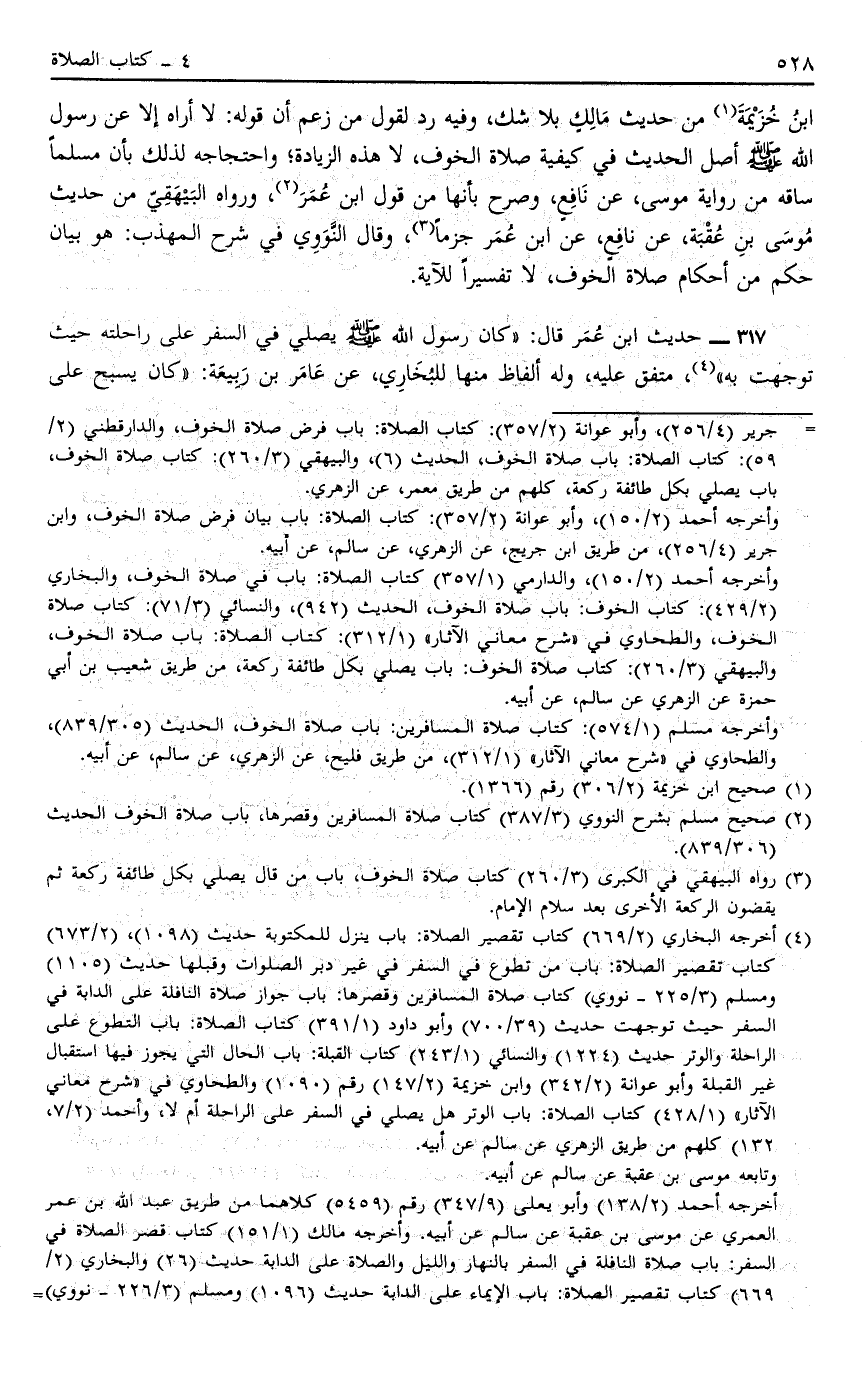 ٥٢٨ ٤ ـ كتاب الصلاة
ابنُ خُزَيْمَةَ(١) من حديث مَالِكٍ بلا شك، وفيه رد لقول من زعم أن قوله: لا أراه إلا عن رسول
الله ﷺ أصل الحديث في كيفية صلاة الخوف، لا هذه الزيادة؛ واحتجاجه لذلك بأن مسلماً
ساقه من رواية موسى، عن نَافِعٍ، وصرح بأنها من قول ابن عُمَرَ(٢)، ورواه البَيْهَقِيّ من حديث
مُوسَى بنِ عُقْبَة، عن نافِع، عن ابن عُمَر جزماً(٣)، وقال النَّوَوِي في شرح المهذب: هو بيان
حكم من أحكام صلاة الخوف، لا تفسيراً للآية.
٣١٧ ــ حديث ابن عُمَر قال: «كان رسول الله ﷺ يصلي في السفر على راحلته حيث
توجهت به»(٤)، متفق عليه، وله ألفاظ منها للبُخَارِي، عن عَامَر بن رَبِيعَة: «كان يسبح على
= جرير (٢٥٦/٤)، وأبو عوانة (٣٥٧/٢): كتاب الصلاة: باب فرض صلاة الخوف، والدارقطني (٢/
٥٩): كتاب الصلاة: باب صلاة الخوف، الحديث (٦)، والبيهقي (٢٦٠/٣): كتاب صلاة الخوف،
باب يصلي بكل طائفة ركعة، كلهم من طريق معمر، عن الزهري.
وأخرجه أحمد (١٥٠/٢)، وأبو عوانة (٣٥٧/٢): كتاب الصلاة: باب بيان فرض صلاة الخوف، وابن
جرير (٢٥٦/٤)، من طريق ابن جريج، عن الزهري، عن سالم، عن أبيه.
وأخرجه أحمد (١٥٠/٢)، والدارمي (٣٥٧/١) كتاب الصلاة: باب في صلاة الخوف، والبخاري
(٤٢٩/٢): كتاب الخوف: باب صلاة الخوف، الحديث (٩٤٢)، والنسائي (٧١/٣): كتاب صلاة
الخوف، والطحاوي في «شرح معاني الآثار» (٣١٢/١): كتاب الصلاة: باب صلاة الخوف،
والبيهقي (٢٦٠/٣): كتاب صلاة الخوف: باب يصلي بكل طائفة ركعة، من طريق شعيب بن أبي
حمزة عن الزهري عن سالم، عن أبيه.
وأخرجه مسلم (٥٧٤/١): كتاب صلاة المسافرين: باب صلاة الخوف، الحديث (٨٣٩/٣٠٥)،
والطحاوي في «شرح معاني الآثار» (٣١٢/١)، من طريق فليح، عن الزهري، عن سالم، عن أبيه.
(١) صحيح ابن خزيمة (٣٠٦/٢) رقم (١٣٦٦).
(٢) صحيح مسلم بشرح النووي (٣٨٧/٣) كتاب صلاة المسافرين وقصرها، باب صلاة الخوف الحديث
(٨٣٩/٣٠٦).
(٣) رواه البيهقي في الكبرى (٢٦٠/٣) كتاب صلاة الخوف، باب من قال يصلي بكل طائفة ركعة ثم
يقضون الركعة الأخرى بعد سلام الإمام.
(٤) أخرجه البخاري (٦٦٩/٢) كتاب تقصير الصلاة: باب ينزل للمكتوبة حديث (١٠٩٨)، (٦٧٣/٢)
كتاب تقصير الصلاة: باب من تطوع في السفر في غير دبر الصلوات وقبلها حديث (١١٠٥)
ومسلم (٢٢٥/٣ - نووي) كتاب صلاة المسافرين وقصرها: باب جواز صلاة النافلة على الدابة في
السفر حيث توجهت حديث (٧٠٠/٣٩) وأبو داود (٣٩١/١) كتاب الصلاة: باب التطوع على
الراحلة والوتر حديث (١٢٢٤) والنسائي (٢٤٣/١) كتاب القبلة: باب الحال التي يجوز فيها استقبال
غير القبلة وأبو عوانة (٣٤٢/٢) وابن خزيمة (١٤٧/٢) رقم (١٠٩٠) والطحاوي في «شرح معاني
الآثار» (٤٢٨/١) كتاب الصلاة: باب الوتر هل يصلي في السفر على الراحلة أم لا، وأحمد (٧/٢،
١٣٢) كلهم من طريق الزهري عن سالم عن أبيه.
وتابعه موسى بن عقبة عن سالم عن أبيه.
أخرجه أحمد (١٣٨/٢) وأبو يعلى (٣٤٧/٩) رقم (٥٤٥٩) كلاهما من طريق عبد الله بن عمر
العمري عن موسى بن عقبة عن سالم عن أبيه. وأخرجه مالك (١٥١/١) كتاب قصر الصلاة في
السفر: باب صلاة النافلة في السفر بالنهار والليل والصلاة على الدابة حديث (٢٦) والبخاري (٢/
٦٦٩) كتاب تقصير الصلاة: باب الإيماء على الدابة حديث (١٠٩٦) ومسلم (٢٢٦/٣ - نووي)=